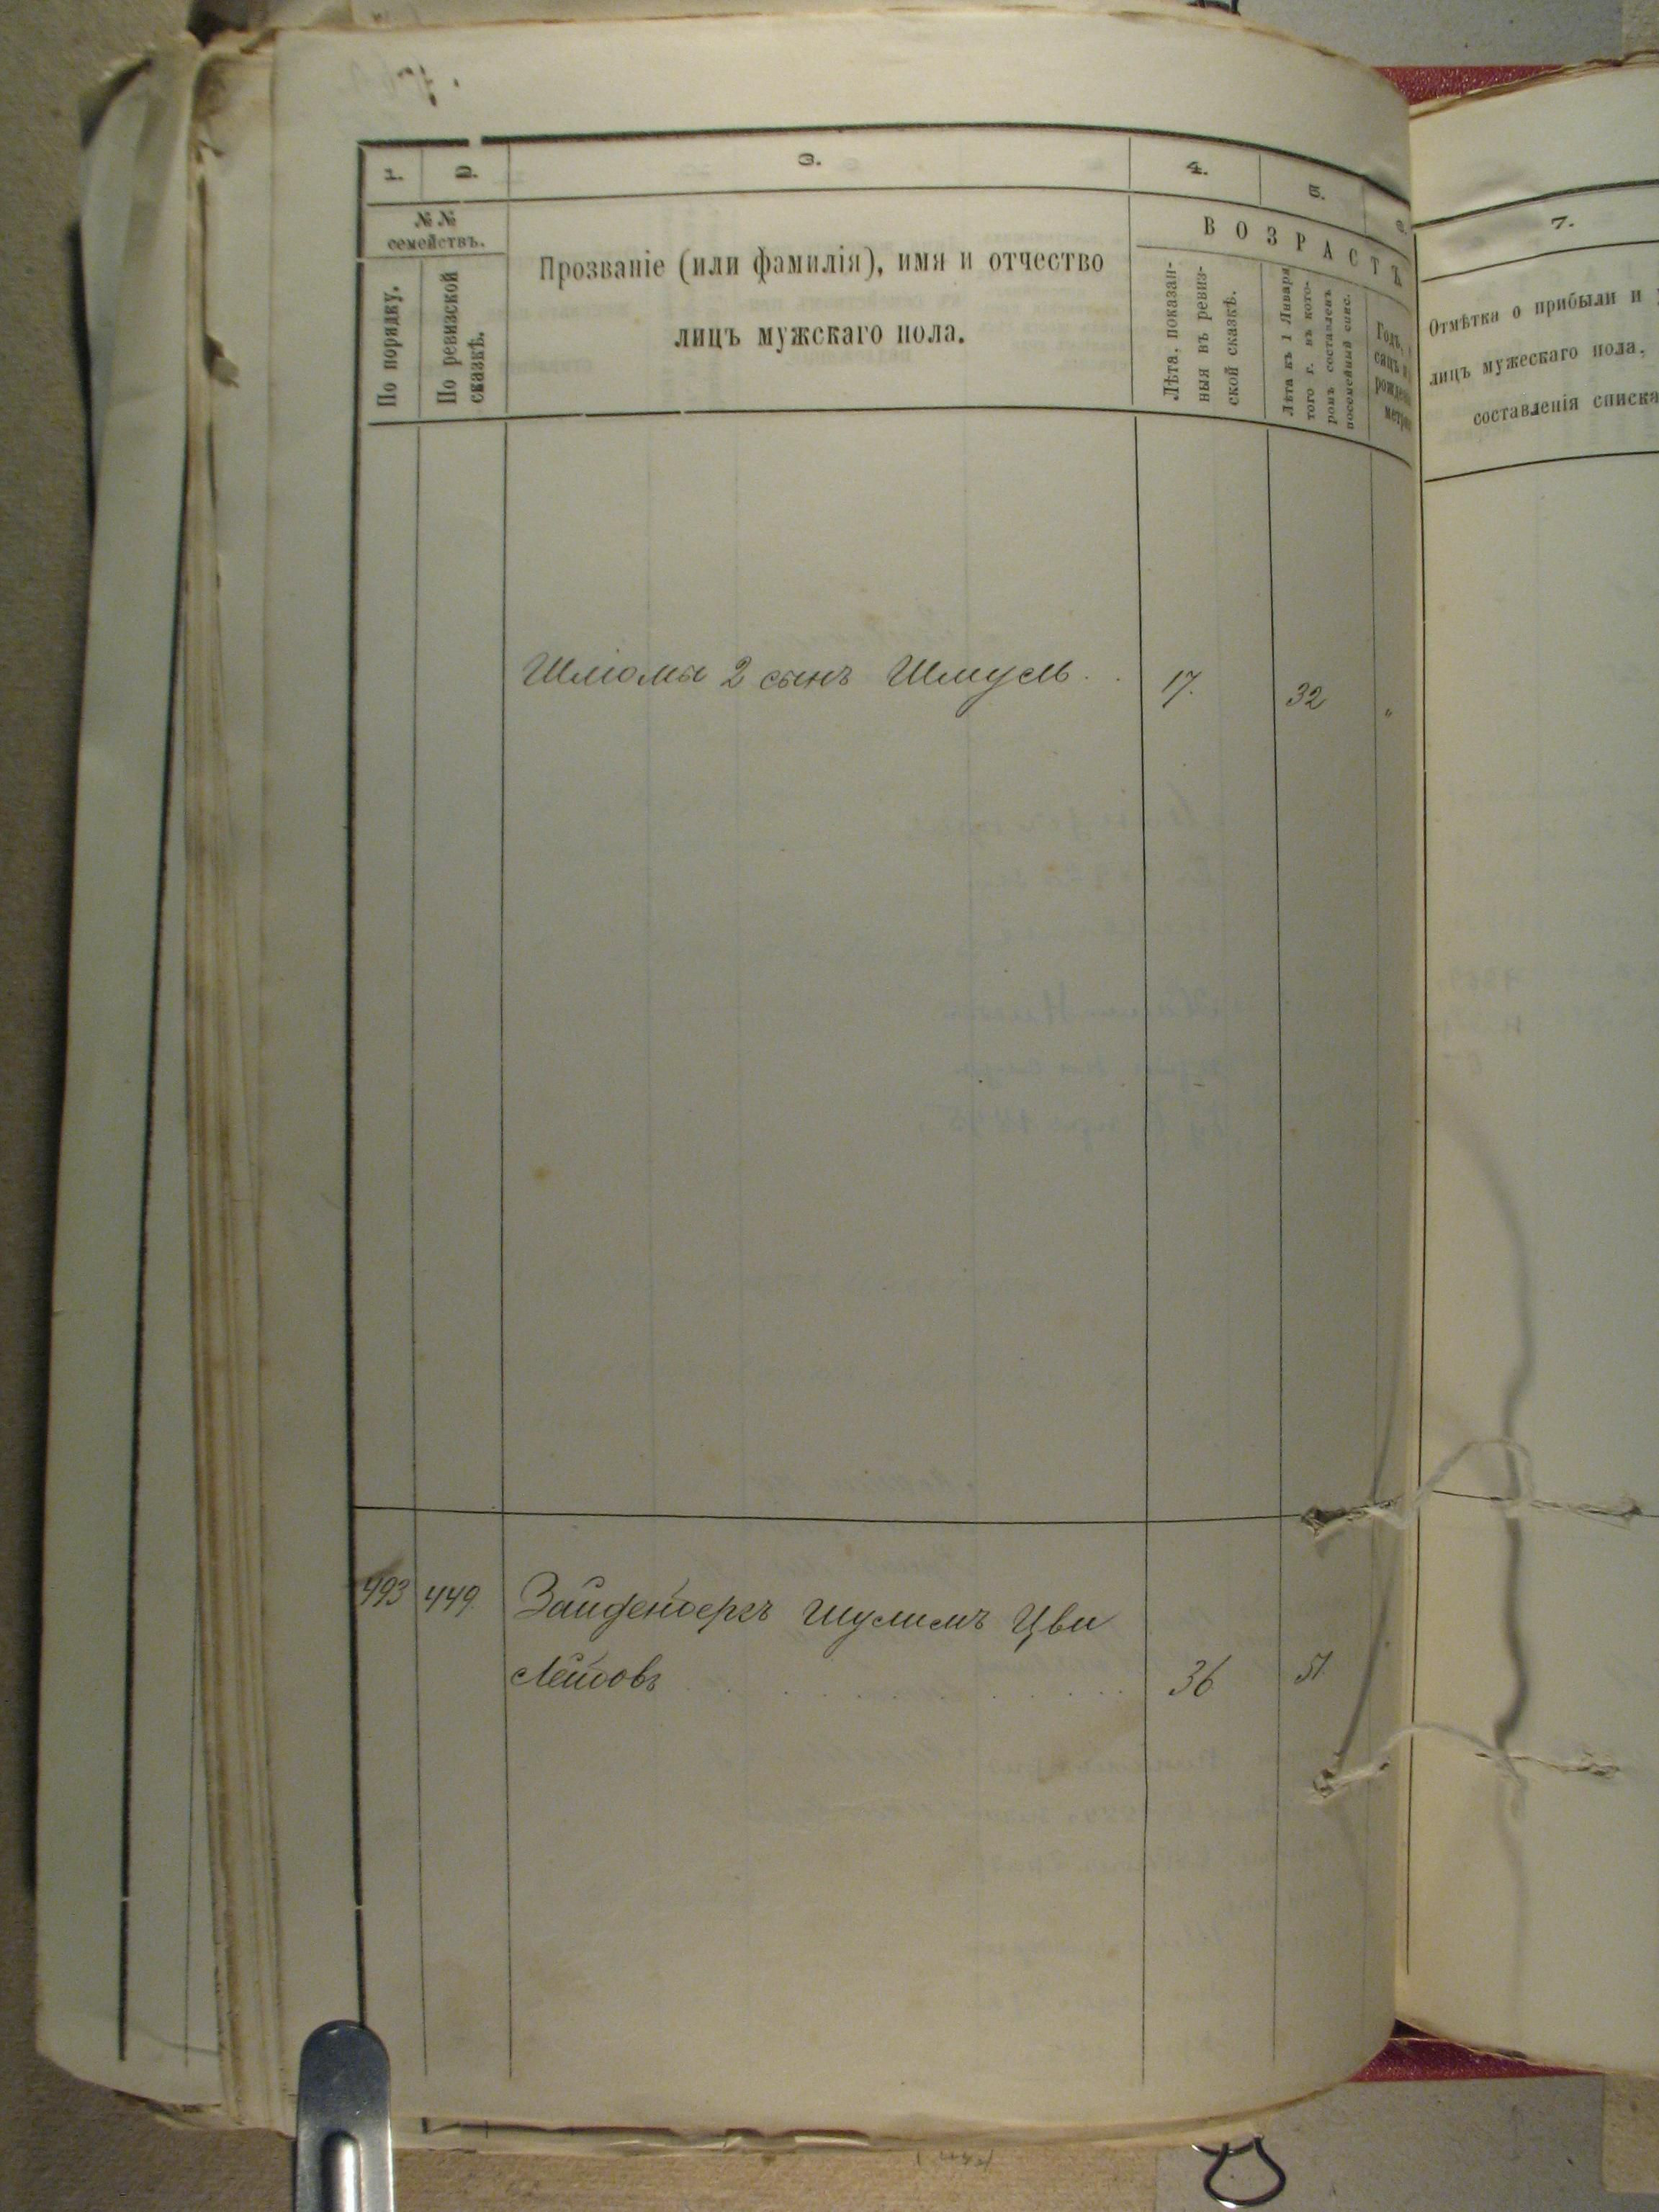 1.
2.
3.
4.
5.
7.
№ №
семействъ.
По порядку.
По ревизской
сказкѣ.
Прозваніе (или фамилія), имя и отчество
лицъ мужскаго пола.
ВОЗРАСТЪ
Лѣта, показан-
ныя въ ревиз-
ской сказкѣ.
Лѣта къ 1 Января
того г. въ кото-
ромъ составленъ
посемейный спис.
Отмѣтка о прибыли и
лицъ мужескаго пола,
составленія списка
Шліомы 2 сынъ Шмуль . . 17. 32 "
493 449 Зайденбергъ Шулимъ Цви
Лейбовъ . . . . . . . . . 36 51